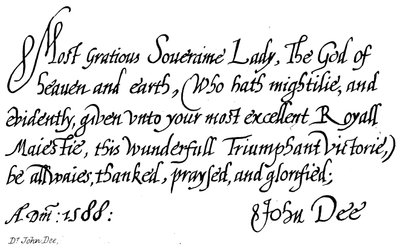 Most Gratious Soueraine Lady, The God of
heauen and earth, (Who hath mightilie, and
evidently, given vnto your most excellent Royall
Maiestie, this wunderfull Triumphant Victorie,)
be allwaies, thanked, praysed, and glorified;
A. Dm̄: 1588:
John Dee
Dr. John Dee.